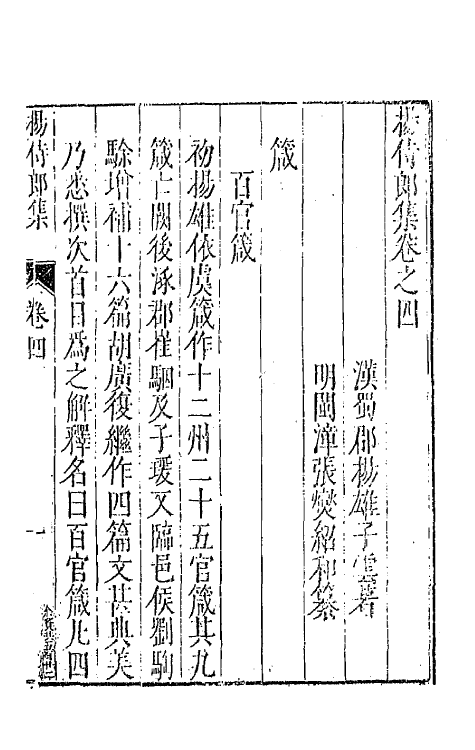 揚侍郎集卷之四
漢蜀郡揚雄子雲著
明閩漳張燮紹和纂
箴
百官箴
初揚雄依虞箴作十二州二十五官箴其九
箴亡闕後涿郡崔駰及子瑗又臨邑侯劉騊
駼增補十六篇胡廣復繼作四篇文甚典美
乃悉撰次首目爲之解釋名曰百官箴凡四
揚侍郎集
卷四
一